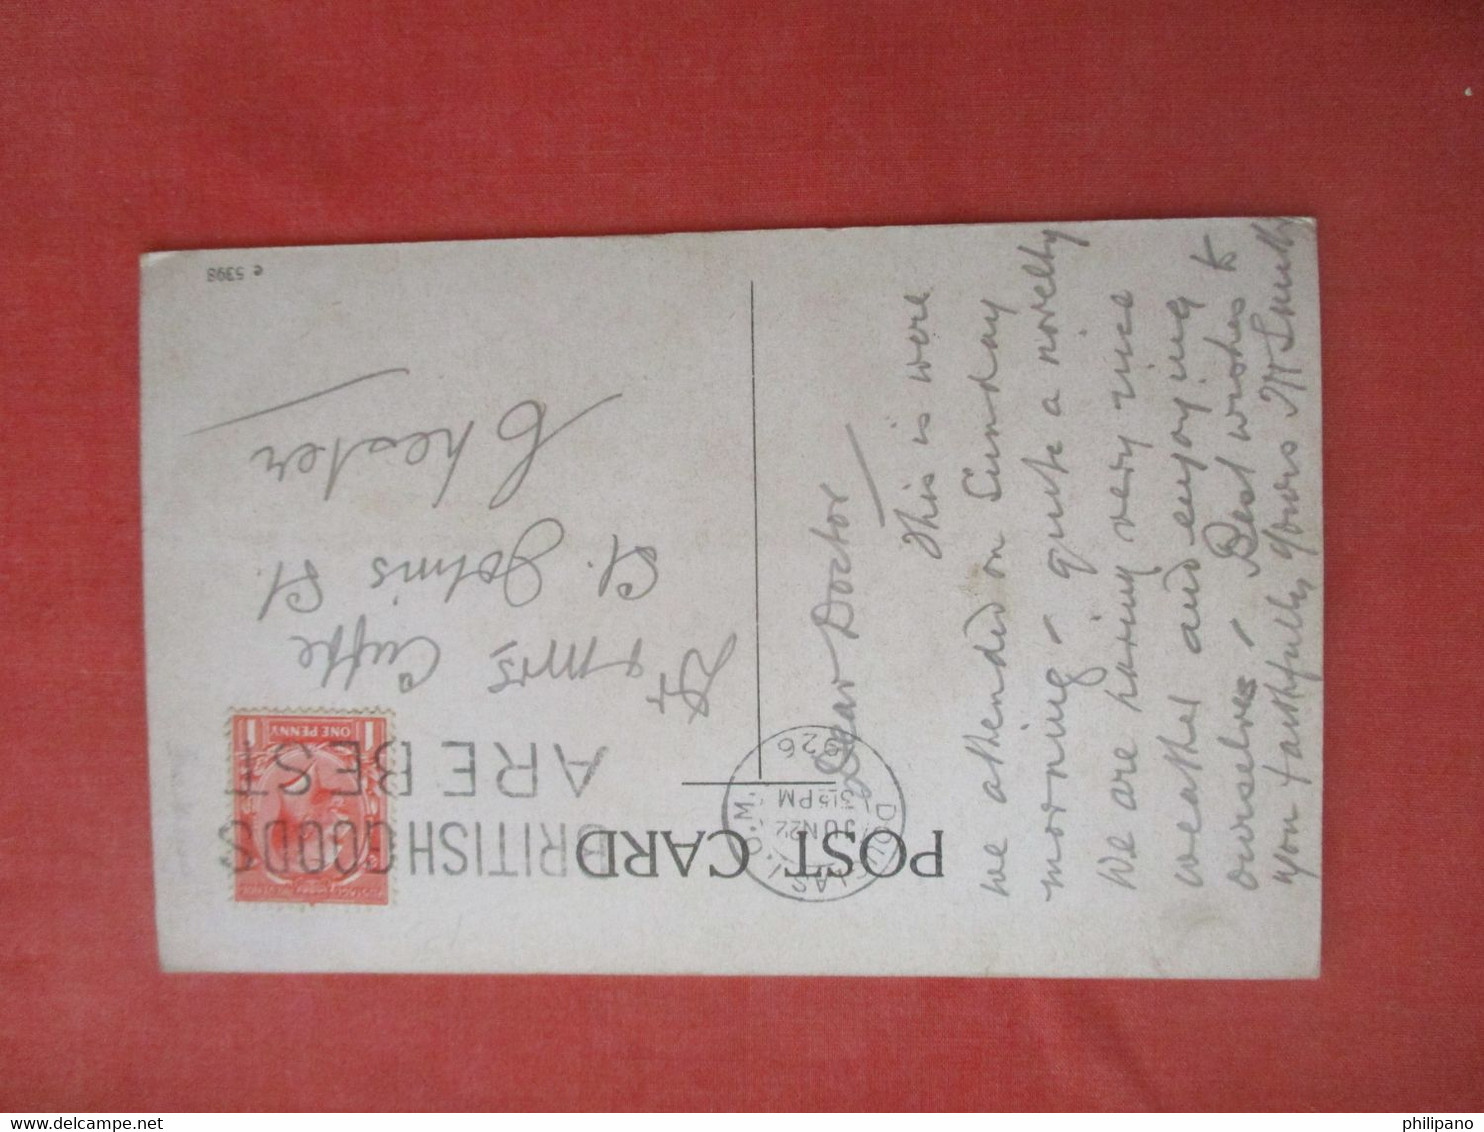 POST CARD
BRITISH GOODS
ARE BEST
DOUGLAS I.O.M.
315 PM
JUN 22
1926
ONE PENNY
Dr
& Mrs Cuffe
St. John's St.
Chester
Dear Doctor
This is were
we athended on Sunday
morning - quite a novelty
We are having very nice
weather and enjoying
ourselves - Best wishes to
you faithfully yours W Smith
e 5398
www.delcampe.net
philipano